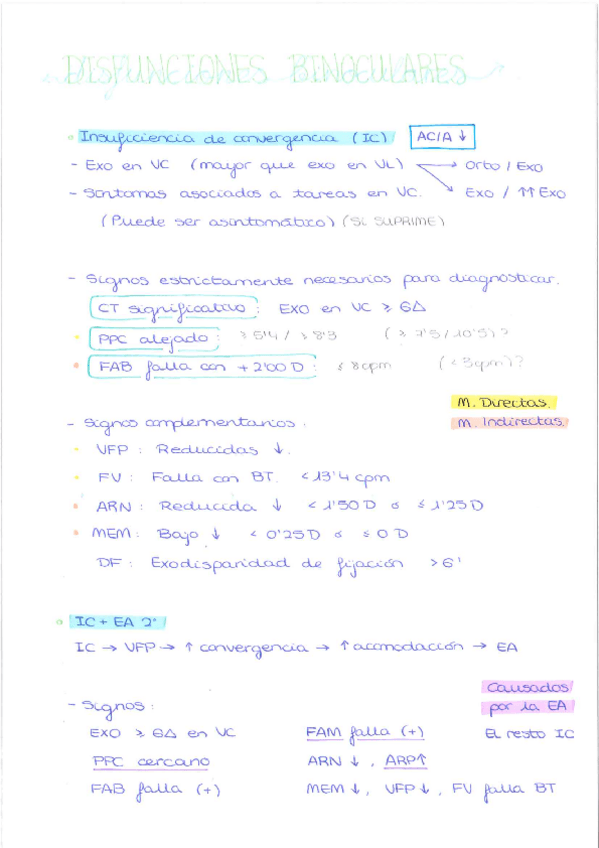 DISFUNCIONES BINOCULARES
Insuficiencia de convergencia (IC) AC/A ↓
- Exo en VC (mayor que exo en VL) → Orto / Exo
- Síntomas asociados a tareas en VC. Exo / ↑↑ Exo
(Puede ser asintomático) (SI SUPRIME)
- Signos estrictamente necesarios para diagnosticar.
CT significativo : EXO en VC ≥ 6Δ
PPC alejado : ≥ 5'4 / ≥ 8'3 (≥ 7'5 / 10'5)?
FAB falla con +2'00 D : ≤ 8cpm (<3cpm)?
M. Directas.
- Signos complementarios : M. Indirectas.
VFP : Reducidas ↓.
FV : Falla con BT. <13'4 cpm
ARN : Reducida ↓ < 1'50 D o ≤ 1'25 D
MEM : Bajo ↓ < 0'25 D o ≤ 0 D
DF : Exodisparidad de fijación >6'
IC + EA 2ª
IC → VFP → ↑ convergencia → ↑ acomodación → EA
Causados
- Signos : por la EA
EXO ≥ 6Δ en VC FAM falla (+) El resto IC
PPC cercano ARN ↓ , ARP↑
FAB falla (+) MEM ↓, VFP↓, FV falla BT